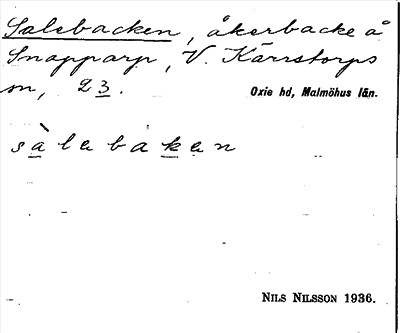 Salebacken, åkerbacke å
Snapparp, V. Kärrstorps
sn, 23.
Oxie hd, Malmöhus län.
sàlebaken
NILS NILSSON 1936.